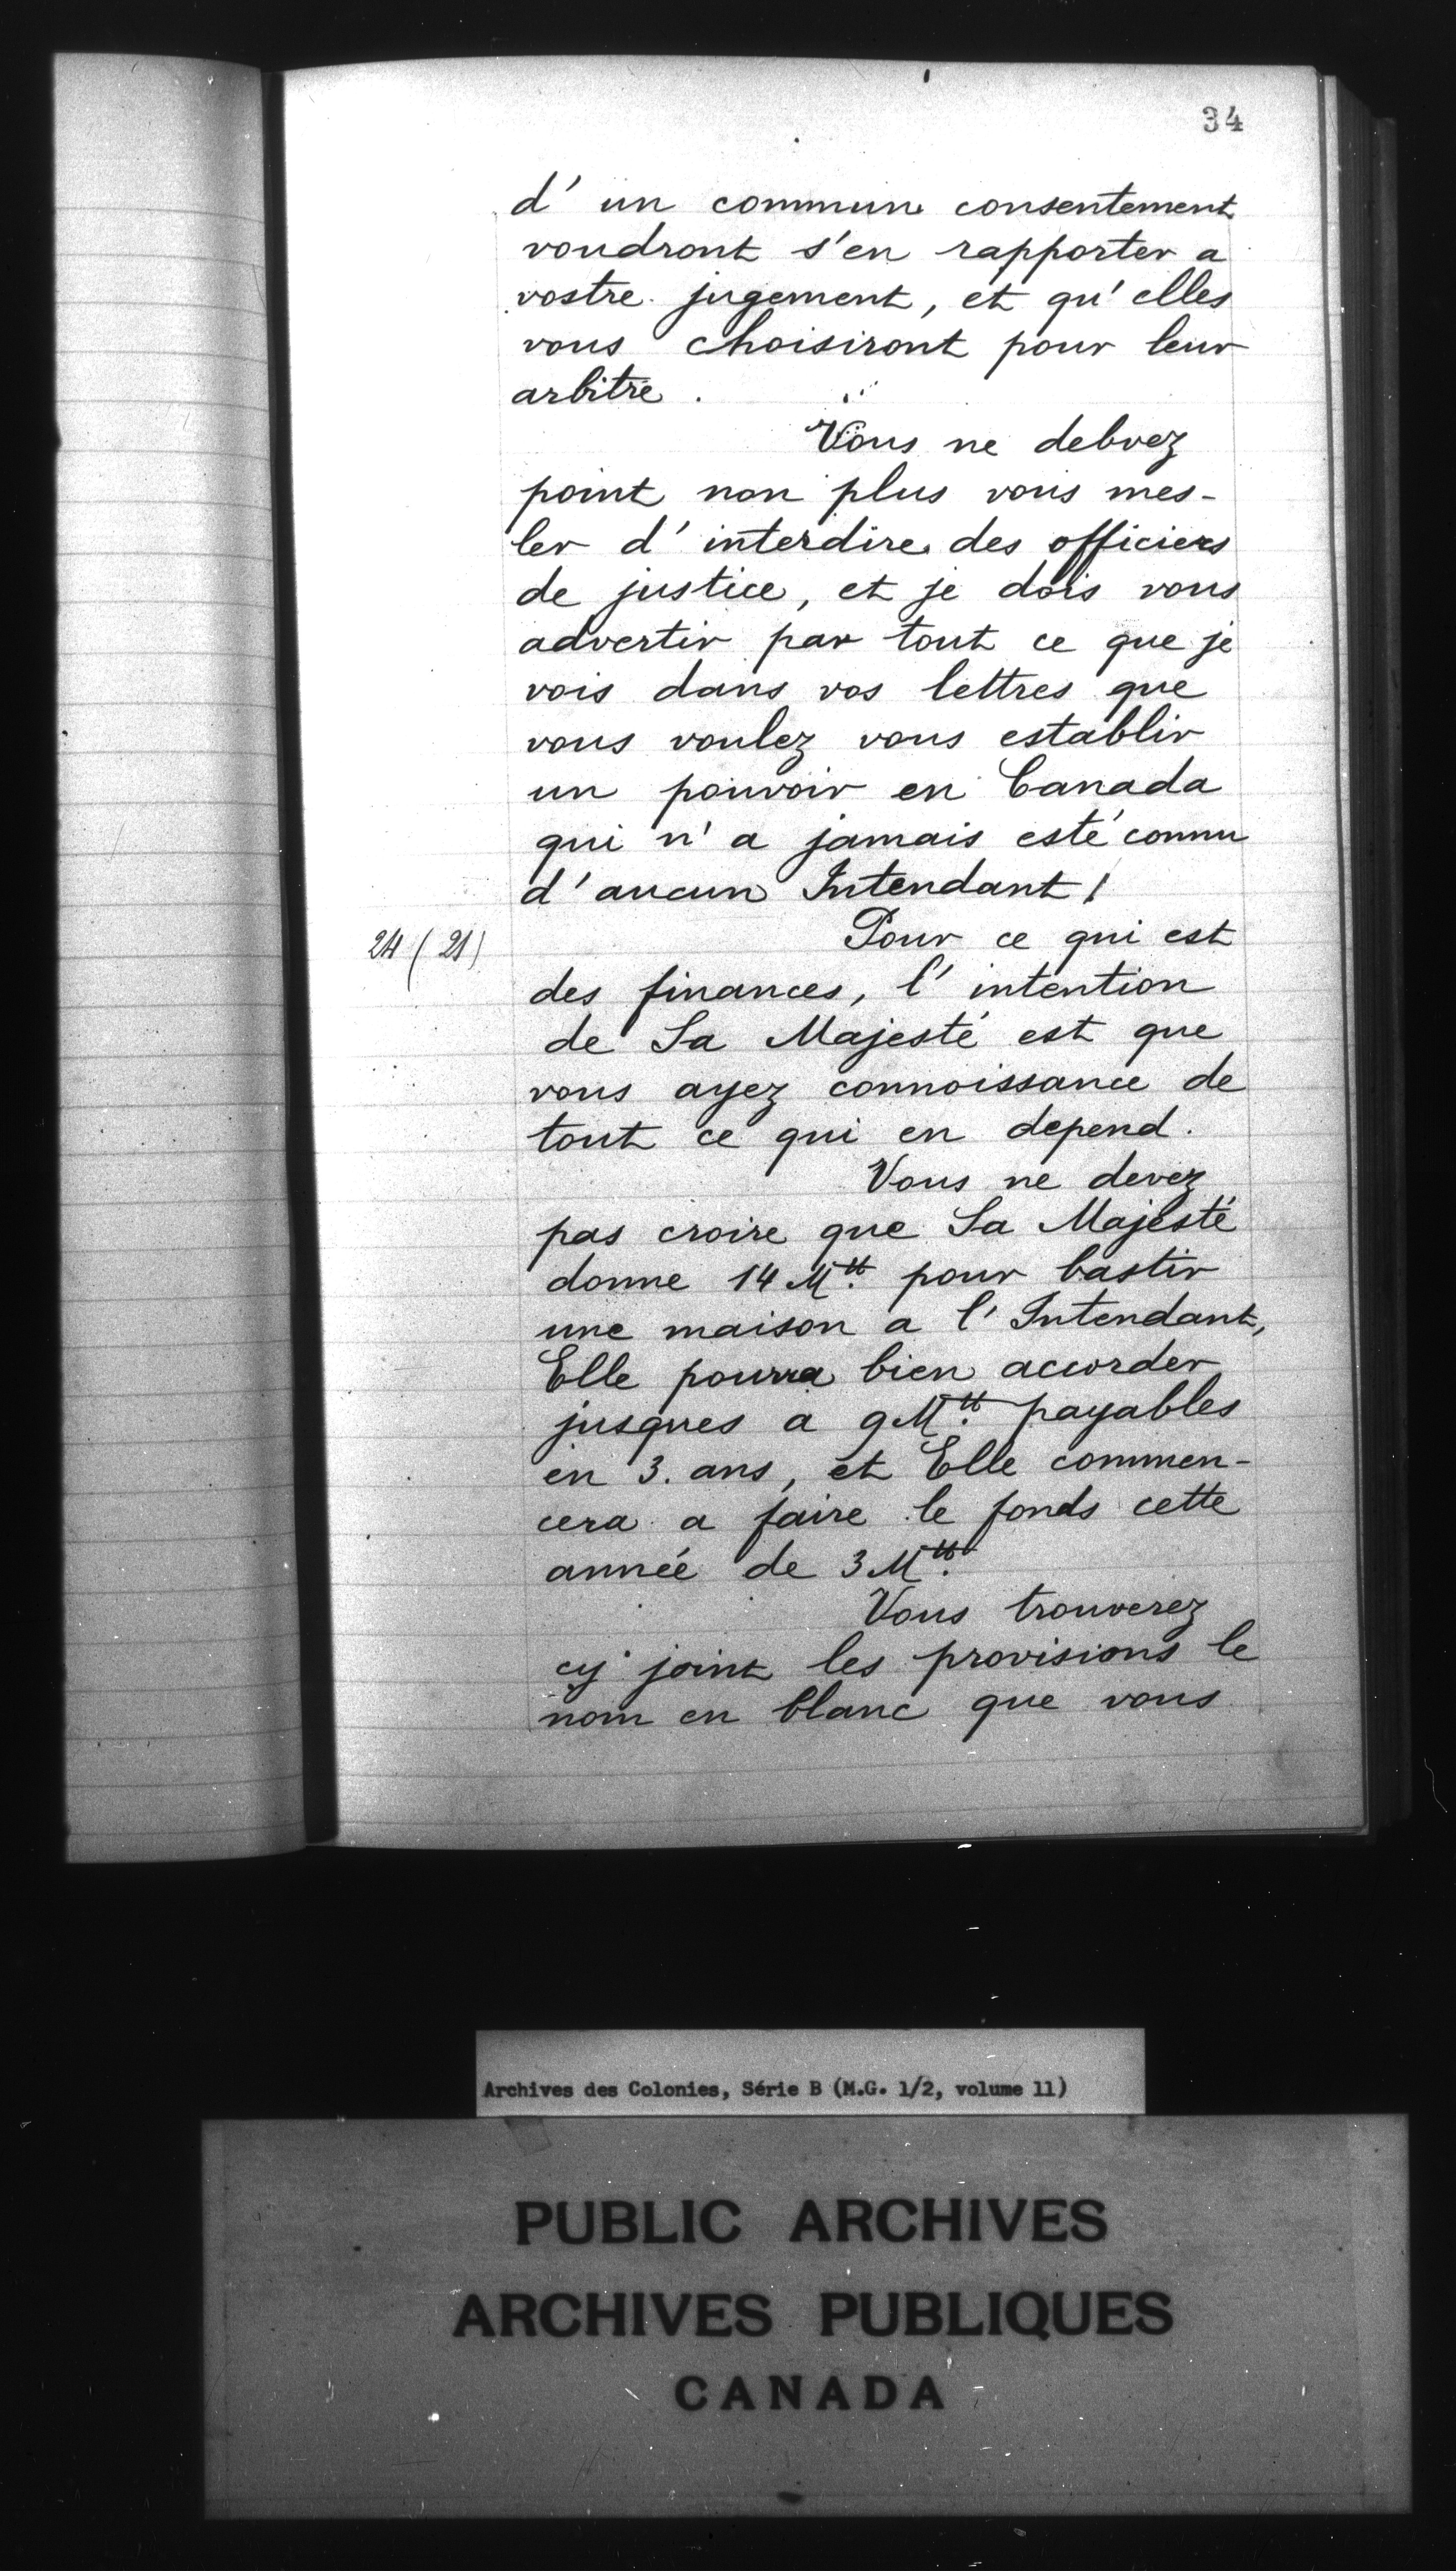 34
d' un commun consentement
voudront s'en rapporter a
vostre jugement, et qu' elles
vous choisiront pour leur
arbitre.
Vous ne debvez
point non plus vous mes-
ler d' interdire des officiers
de justice, et je dois vous
advertir par tout ce que je
vois dans vos lettres que
vous voulez vous establir
un pouvoir en Canada
qui n' a jamais esté connu
d'aucun Intendant /
24 (21)
Pour ce qui est
des finances, l' intention
de Sa Majesté est que
vous ayez connoissance de
tout ce qui en depend.
Vous ne devez
pas croire que Sa Majesté
donne 14 M tt. pour bastir
une maison a l' Intendant,
Elle pourra bien accorder
jusques a 9 M tt. payables
en 3. ans, et Elle commen-
cera a faire le fonds cette
année de 3 M tt.
Vous trouverez
cy joint les provisions le
nom en blanc que vous
Archives des Colonies, Série B (M.G. 1/2, volume 11)
PUBLIC ARCHIVES
ARCHIVES PUBLIQUES
CANADA